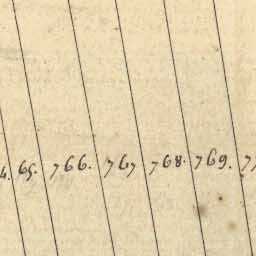 4. 65. 766. 767 768. 769. 77